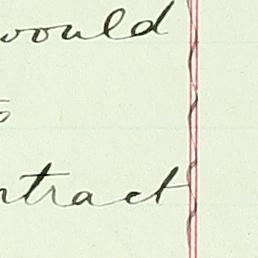 would
ntract